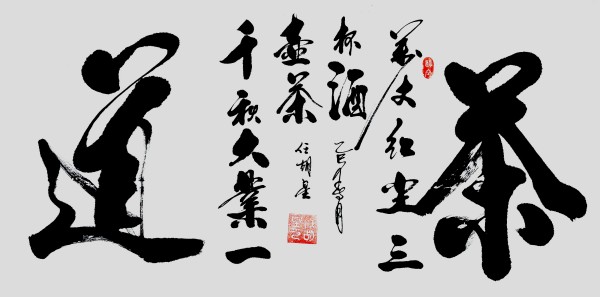 茶
萬丈红尘三
杯酒
千秋大業一
壶茶
道
乙巳年月
任胡星